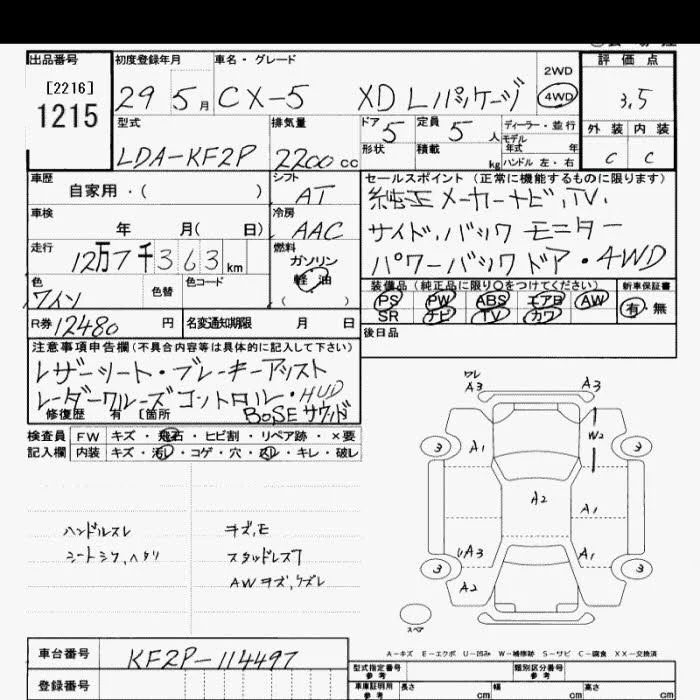 出品番号
[2216]
1215
初度登録年月
29 5月
車名・グレード
CX-5 XD Lパッケージ
2WD
4WD
評価点
3.5
外装 内装
C C
型式
LDA-KF2P
排気量
2200cc
ドア 5
形状
定員 5人
積載 kg
ディーラー・並行
モデル年式 年
ハンドル 左・右
車歴
自家用・( )
シフト
AT
車検
年 月( 日)
冷房
AAC
走行
12万7千363km
燃料
ガソリン
軽油
( )
色
ワイン
色替
色コード
R券 12480円
名変通知期限 月 日
セールスポイント(正常に機能するものに限ります)
純正メーカーナビ,TV.
サイド,バックモニター
パワーバックドア・4WD
装備品(純正品に限り○をつけてください)
PS PW ABS エアB AW
SR ナビ TV カワ
新車保証書
有・無
後日品
注意事項申告欄(不具合内容等は具体的に記入して下さい)
レザーシート・ブレーキアシスト
レーダークルーズコントロル・HUD
BOSEサウンド
修復歴 有 [箇所
検査員記入欄
FW キズ・飛石・ヒビ割・リペア跡・×要
内装 キズ・汚レ・コゲ・穴・スレ・キレ・破レ
ハンドルスレ
シートシワ,ヘタリ
キズ,E
スタッドレス7
AWキズ,クズレ
ワレ
A3
A3
3
A1
W2
3
A2
A1
A3
A1
3
A2
3
スペア
A-キズ E-エクボ U-凹み W-補修跡 S-サビ C-腐食 XX-交換済
車台番号
KF2P-114497
登録番号
型式指定番号
参考
類別区分番号
参考
車庫証明用
参考
長さ cm
幅 cm
高さ cm